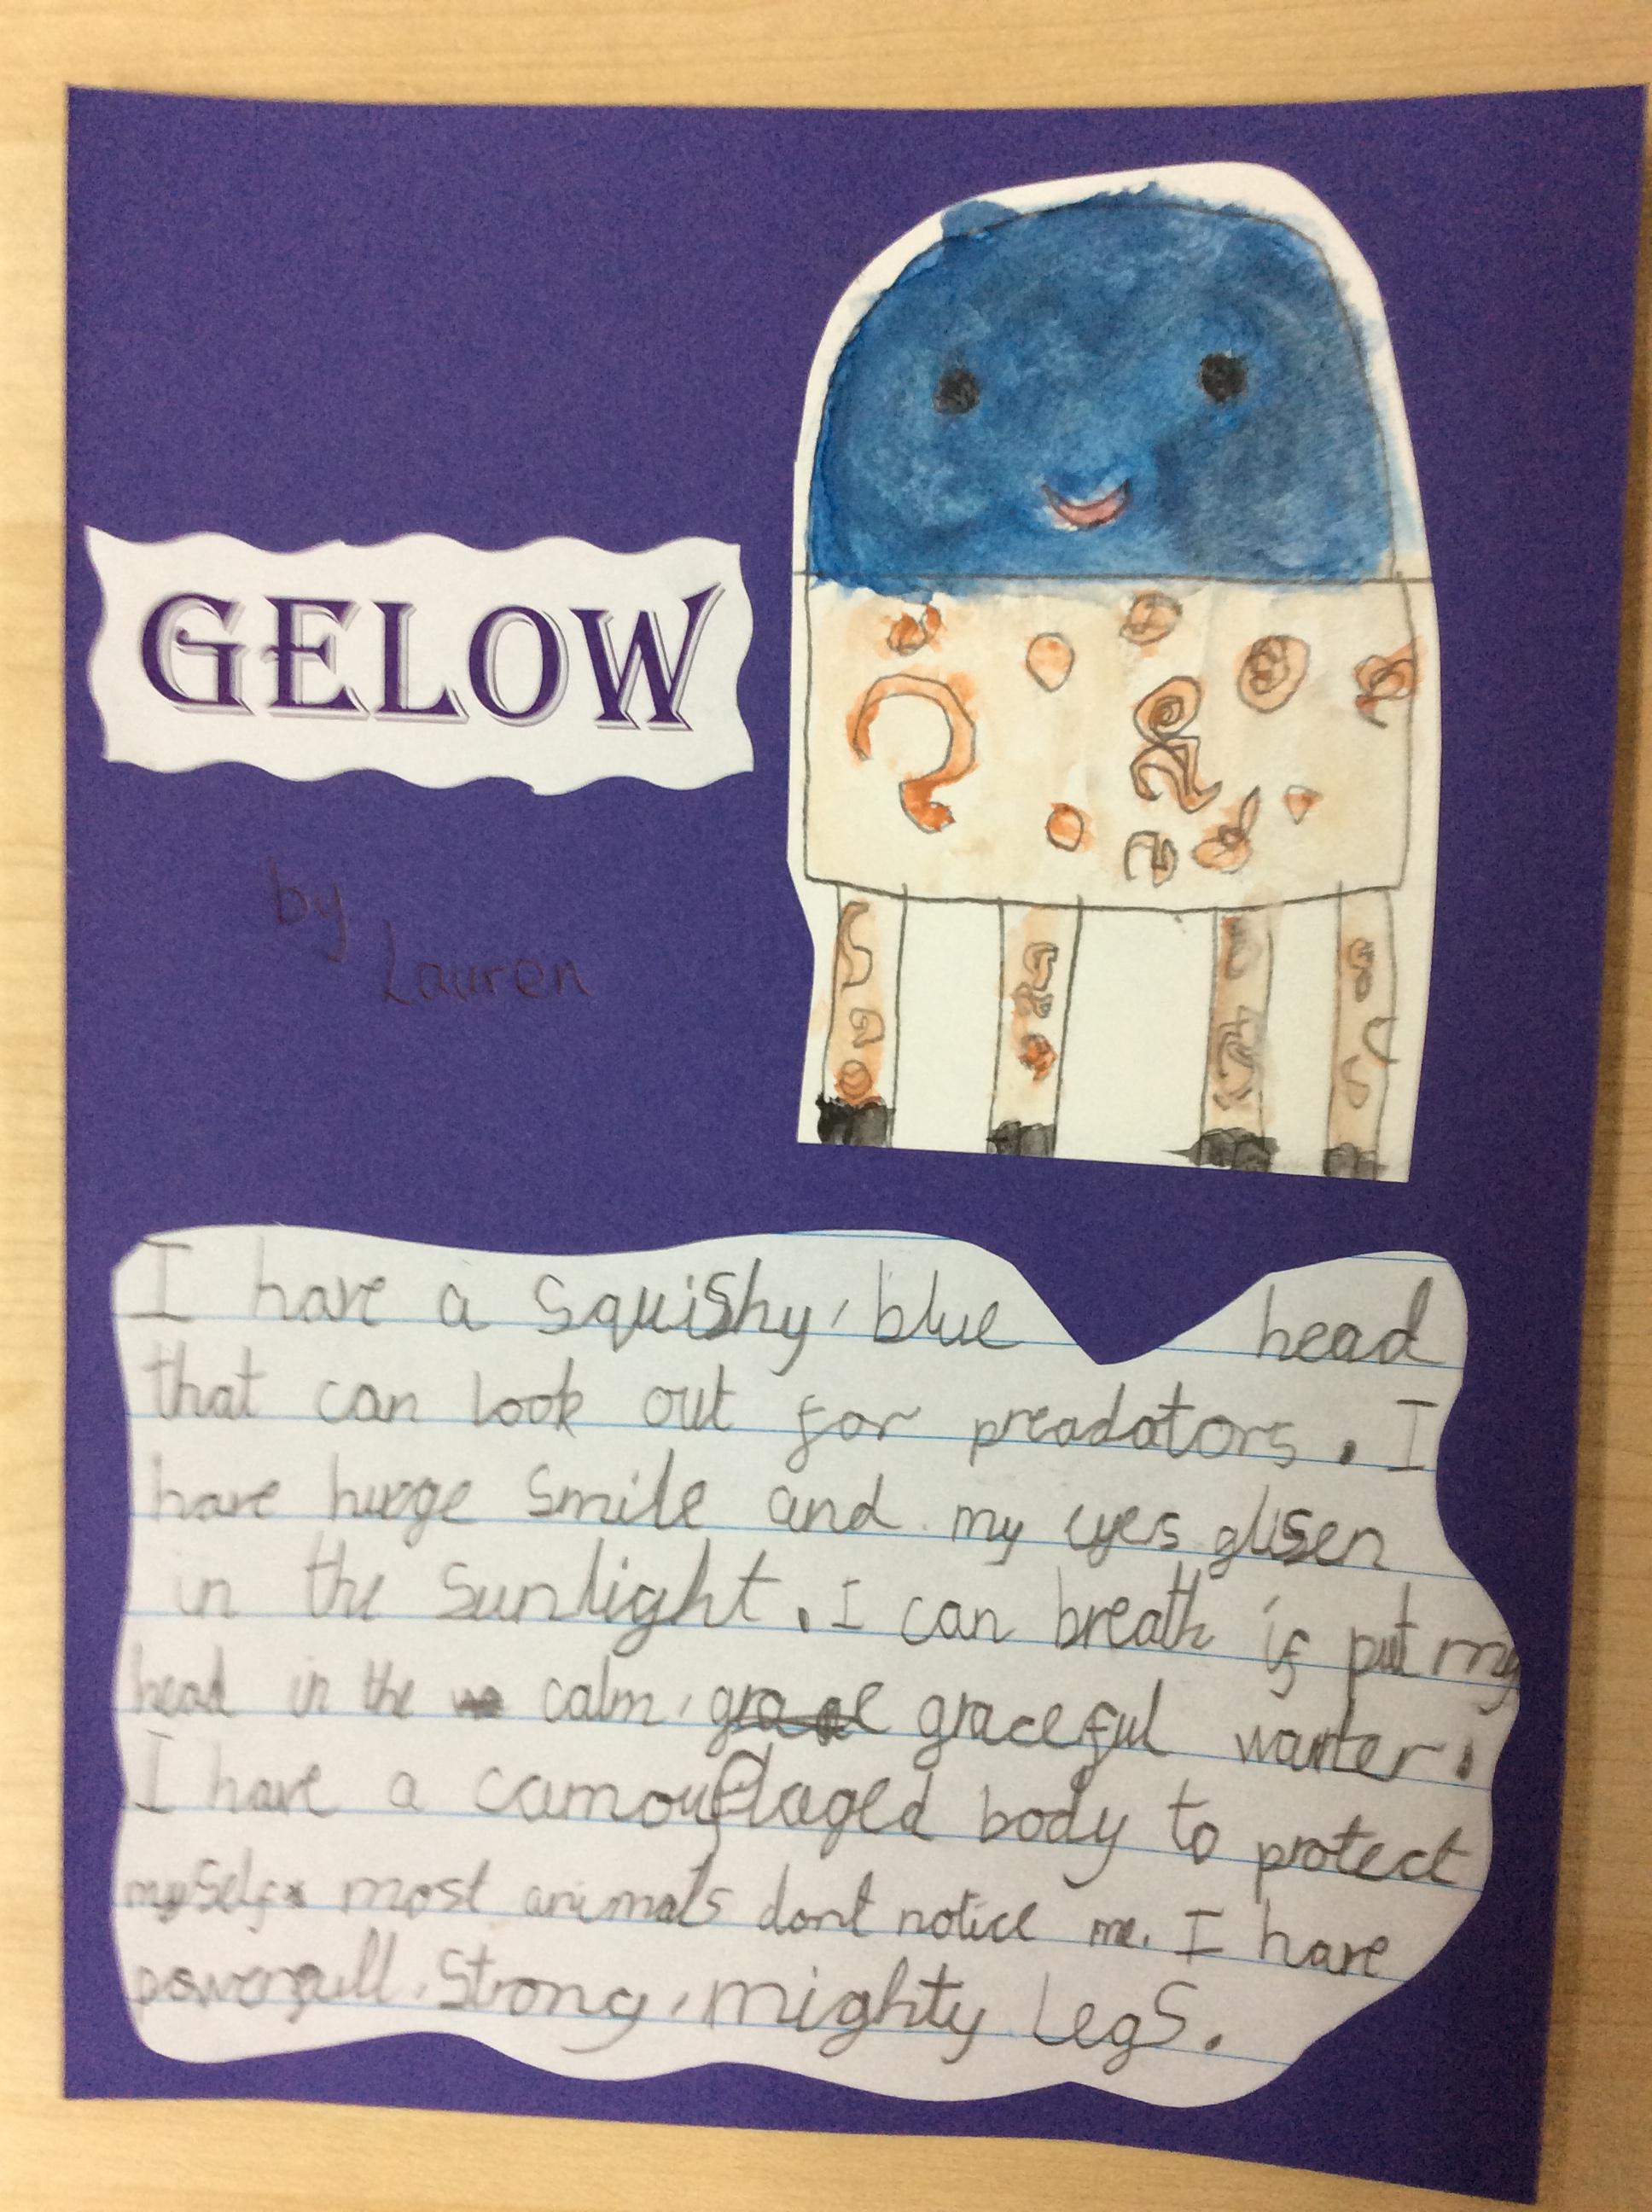 GELOW
by
Lauren
I have a squishy, blue head
that can look out for preadators. I
have huege smile and my eyes glisen
in the sunlight. I can breath if put my
head in the calm, graceful warter.
I have a camouflaged body to protect
myself most animals dont notice me. I have
powerfull, strong, mighty legs.